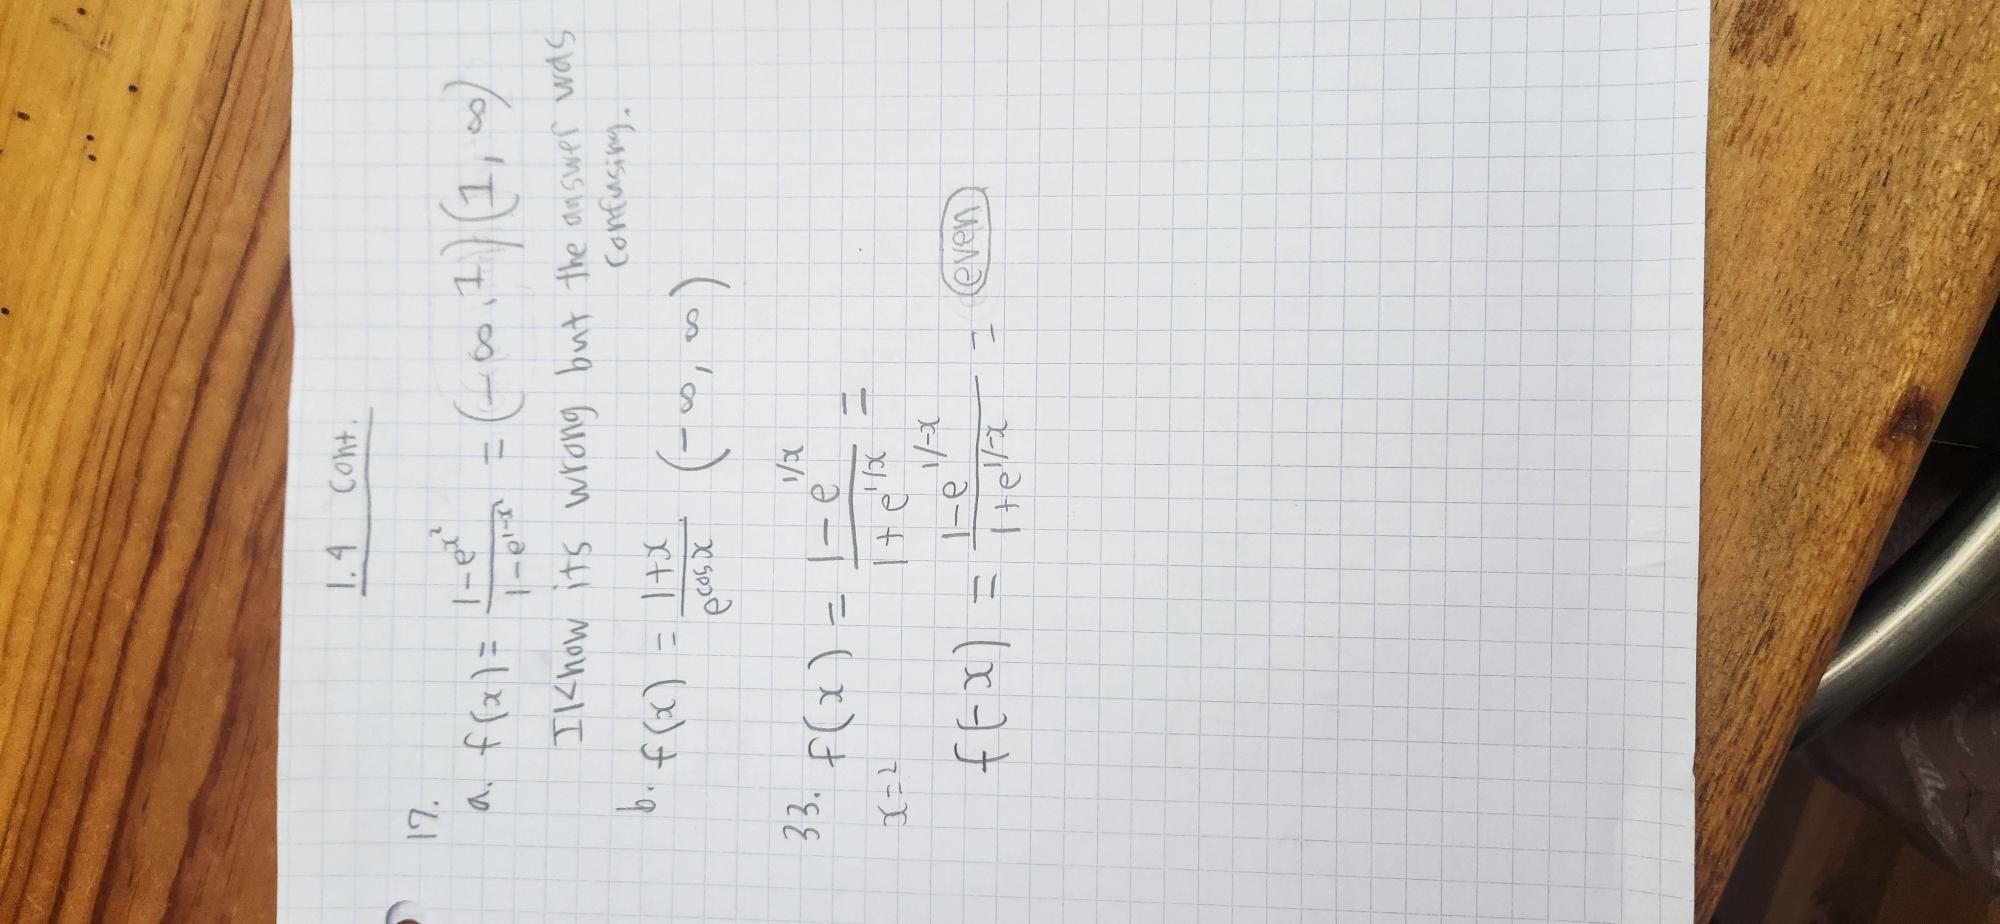 1.4 Cont.
17.
a. f(x) = (1-e^x²)/(1-e^1-x²) = (-∞, 1)(1, ∞)
I Know its wrong but the answer was
confusing.
b. f(x) = (1+x)/(e^cosx) (-∞, ∞)
33. f(x) = (1-e^1/x)/(1+e^1/x) =
x=2
f(-x) = (1-e^1/-x)/(1+e^1/-x) = even